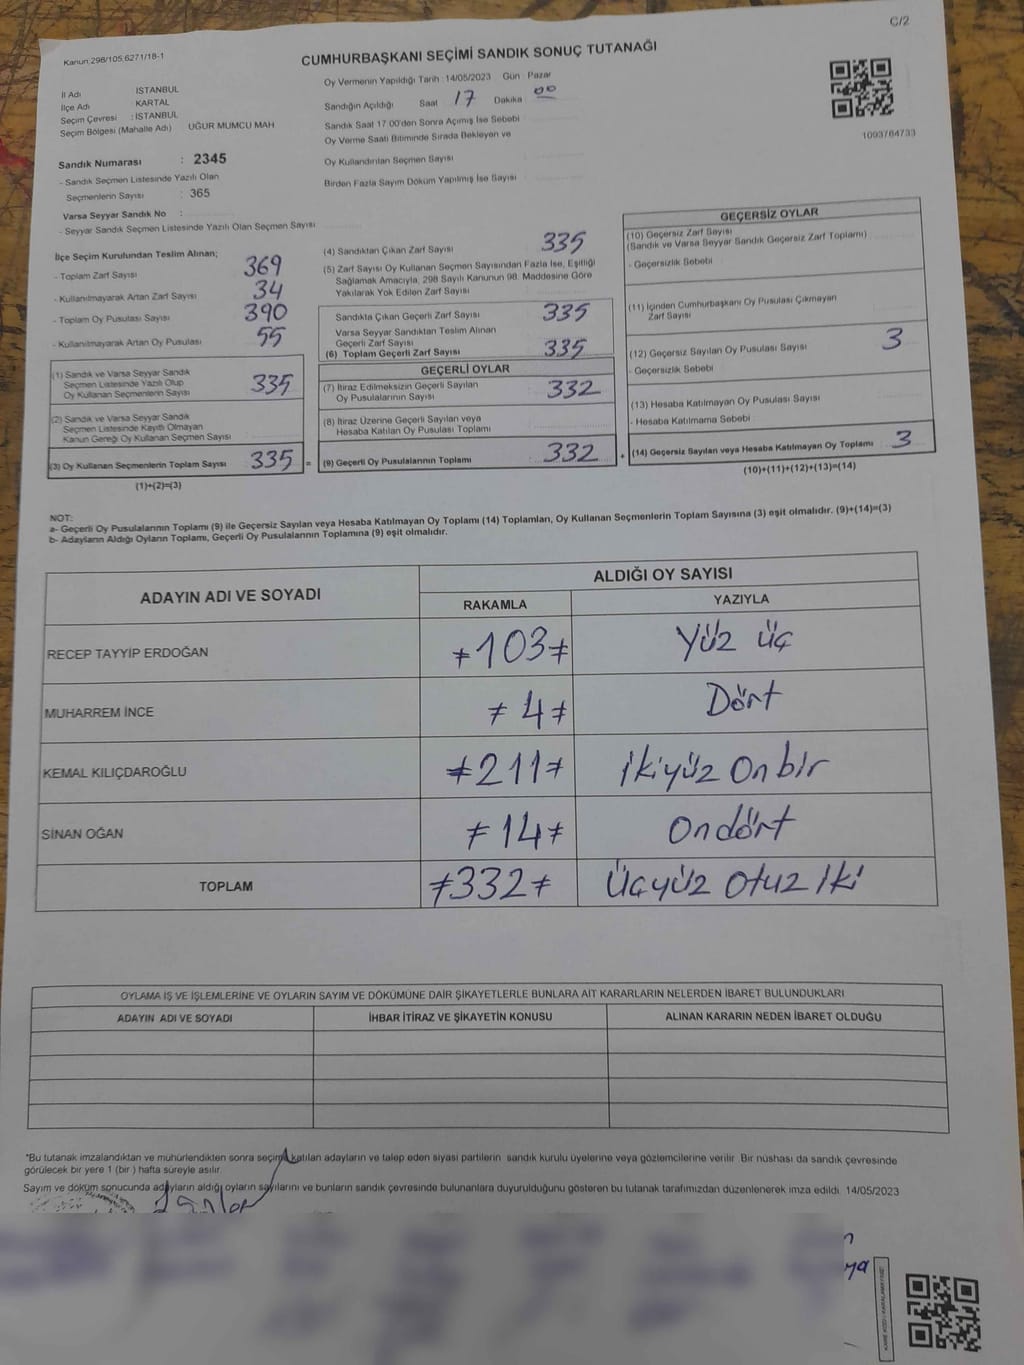 C/2
Kanun:298/105,6271/18-1
CUMHURBAŞKANI SEÇİMİ SANDIK SONUÇ TUTANAĞI
İl Adı İSTANBUL
İlçe Adı KARTAL
Seçim Çevresi : İSTANBUL
Seçim Bölgesi (Mahalle Adı) UĞUR MUMCU MAH
Sandık Numarası : 2345
- Sandık Seçmen Listesinde Yazılı Olan
Seçmenlerin Sayısı : 365
Varsa Seyyar Sandık No :
- Seyyar Sandık Seçmen Listesinde Yazılı Olan Seçmen Sayısı
Oy Vermenin Yapıldığı Tarih : 14/05/2023 Gün : Pazar
Sandığın Açıldığı Saat 17 Dakika 00
Sandık Saat 17.00'den Sonra Açmış İse Sebebi
Oy Verme Saati Bitiminde Sırada Bekleyen ve
Oy Kullandırılan Seçmen Sayısı
Birden Fazla Sayım Döküm Yapılmış İse Sayısı
1093764733
İlçe Seçim Kurulundan Teslim Alınan;
- Toplam Zarf Sayısı 369
- Kullanılmayarak Artan Zarf Sayısı 34
- Toplam Oy Pusulası Sayısı 390
- Kullanılmayarak Artan Oy Pusulası 55
(1) Sandık ve Varsa Seyyar Sandık
Seçmen Listesinde Yazılı Olup
Oy Kullanan Seçmenlerin Sayısı 335
(2) Sandık ve Varsa Seyyar Sandık
Seçmen Listesinde Kayıtlı Olmayan
Kanun Gereği Oy Kullanan Seçmen Sayısı
(3) Oy Kullanan Seçmenlerin Toplam Sayısı 335 =
(1)+(2)=(3)
(4) Sandıktan Çıkan Zarf Sayısı 335
(5) Zarf Sayısı Oy Kullanan Seçmen Sayısından Fazla İse, Eşitliği
Sağlamak Amacıyla, 298 Sayılı Kanunun 98. Maddesine Göre
Yakılarak Yok Edilen Zarf Sayısı
Sandıkta Çıkan Geçerli Zarf Sayısı 335
Varsa Seyyar Sandıktan Teslim Alınan
Geçerli Zarf Sayısı
(6) Toplam Geçerli Zarf Sayısı 335
GEÇERLİ OYLAR
(7) İtiraz Edilmeksizin Geçerli Sayılan
Oy Pusulalarının Sayısı 332
(8) İtiraz Üzerine Geçerli Sayılan veya
Hesaba Katılan Oy Pusulası Toplamı
(9) Geçerli Oy Pusulalarının Toplamı 332 +
GEÇERSİZ OYLAR
(10) Geçersiz Zarf Sayısı
(Sandık ve Varsa Seyyar Sandık Geçersiz Zarf Toplamı)
- Geçersizlik Sebebi
(11) İçinden Cumhurbaşkanı Oy Pusulası Çıkmayan
Zarf Sayısı
(12) Geçersiz Sayılan Oy Pusulası Sayısı 3
- Geçersizlik Sebebi
(13) Hesaba Katılmayan Oy Pusulası Sayısı
- Hesaba Katılmama Sebebi
(14) Geçersiz Sayılan veya Hesaba Katılmayan Oy Toplamı 3
(10)+(11)+(12)+(13)=(14)
NOT:
a- Geçerli Oy Pusulalarının Toplamı (9) ile Geçersiz Sayılan veya Hesaba Katılmayan Oy Toplamı (14) Toplamları, Oy Kullanan Seçmenlerin Toplam Sayısına (3) eşit olmalıdır. (9)+(14)=(3)
b- Adayların Aldığı Oyların Toplamı, Geçerli Oy Pusulalarının Toplamına (9) eşit olmalıdır.
ADAYIN ADI VE SOYADI ALDIĞI OY SAYISI
RAKAMLA YAZIYLA
RECEP TAYYİP ERDOĞAN ≠103≠ Yüz üç
MUHARREM İNCE ≠4≠ Dört
KEMAL KILIÇDAROĞLU ≠211≠ ikiyüz Onbir
SİNAN OĞAN ≠14≠ Ondört
TOPLAM ≠332≠ Üçyüz otuz iki
OYLAMA İŞ VE İŞLEMLERİNE VE OYLARIN SAYIM VE DÖKÜMÜNE DAİR ŞİKAYETLERLE BUNLARA AİT KARARLARIN NELERDEN İBARET BULUNDUKLARI
ADAYIN ADI VE SOYADI İHBAR İTİRAZ VE ŞİKAYETİN KONUSU ALINAN KARARIN NEDEN İBARET OLDUĞU
*Bu tutanak imzalandıktan ve mühürlendikten sonra seçime katılan adayların ve talep eden siyasi partilerin sandık kurulu üyelerine veya gözlemcilerine verilir. Bir nüshası da sandık çevresinde
görülecek bir yere 1 (bir) hafta süreyle asılır.
Sayım ve döküm sonucunda adayların aldığı oyların sayılarını ve bunların sandık çevresinde bulunanlara duyurulduğunu gösteren bu tutanak tarafımızdan düzenlenerek imza edildi. 14/05/2023